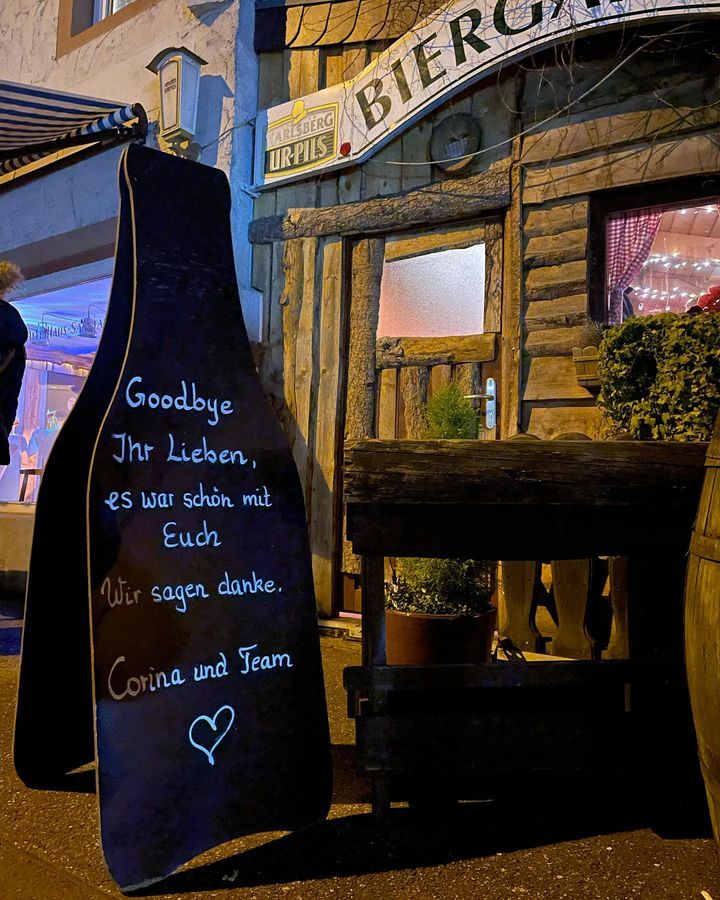 BIERGA
KARLSBERG
UR-PILS
Goodbye
Ihr Lieben,
es war schön mit
Euch
Wir sagen danke.
Corina und Team